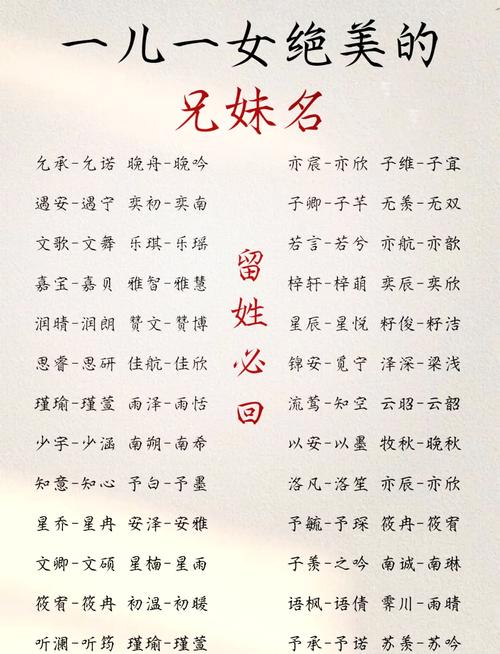 一儿一女绝美的
兄妹名
允承-允诺 晚舟-晚吟
遇安-遇宁 奕初-奕南
文歌-文舞 乐琪-乐瑶
嘉宝-嘉贝 雅智-雅慧
润晴-润朗 赞文-赞博
思睿-思研 佳航-佳欣
瑾瑜-瑾萱 雨泽-雨恬
少宇-少涵 南朔-南希
知意-知心 予白-予墨
星乔-星冉 安泽-安雅
文卿-文硕 星楠-星雨
筱宥-筱冉 初温-初暖
听澜-听筠 瑾瑜-瑾萱
留姓必回
亦宸-亦欣 子维-子宜
子卿-子芊 无羡-无双
若言-若兮 亦航-亦歆
梓轩-梓萌 奕辰-奕欣
星辰-星悦 籽俊-籽洁
锦安-觅宁 泽深-梁浅
流莺-知空 云昭-云韶
以安-以墨 牧秋-晚秋
洛凡-洛笙 亦辰-亦欣
予毓-予琛 筱冉-筱宥
子羡-之吟 南诚-南琳
语枫-语倩 霁川-雨晴
予承-予诺 苏羡-苏吟